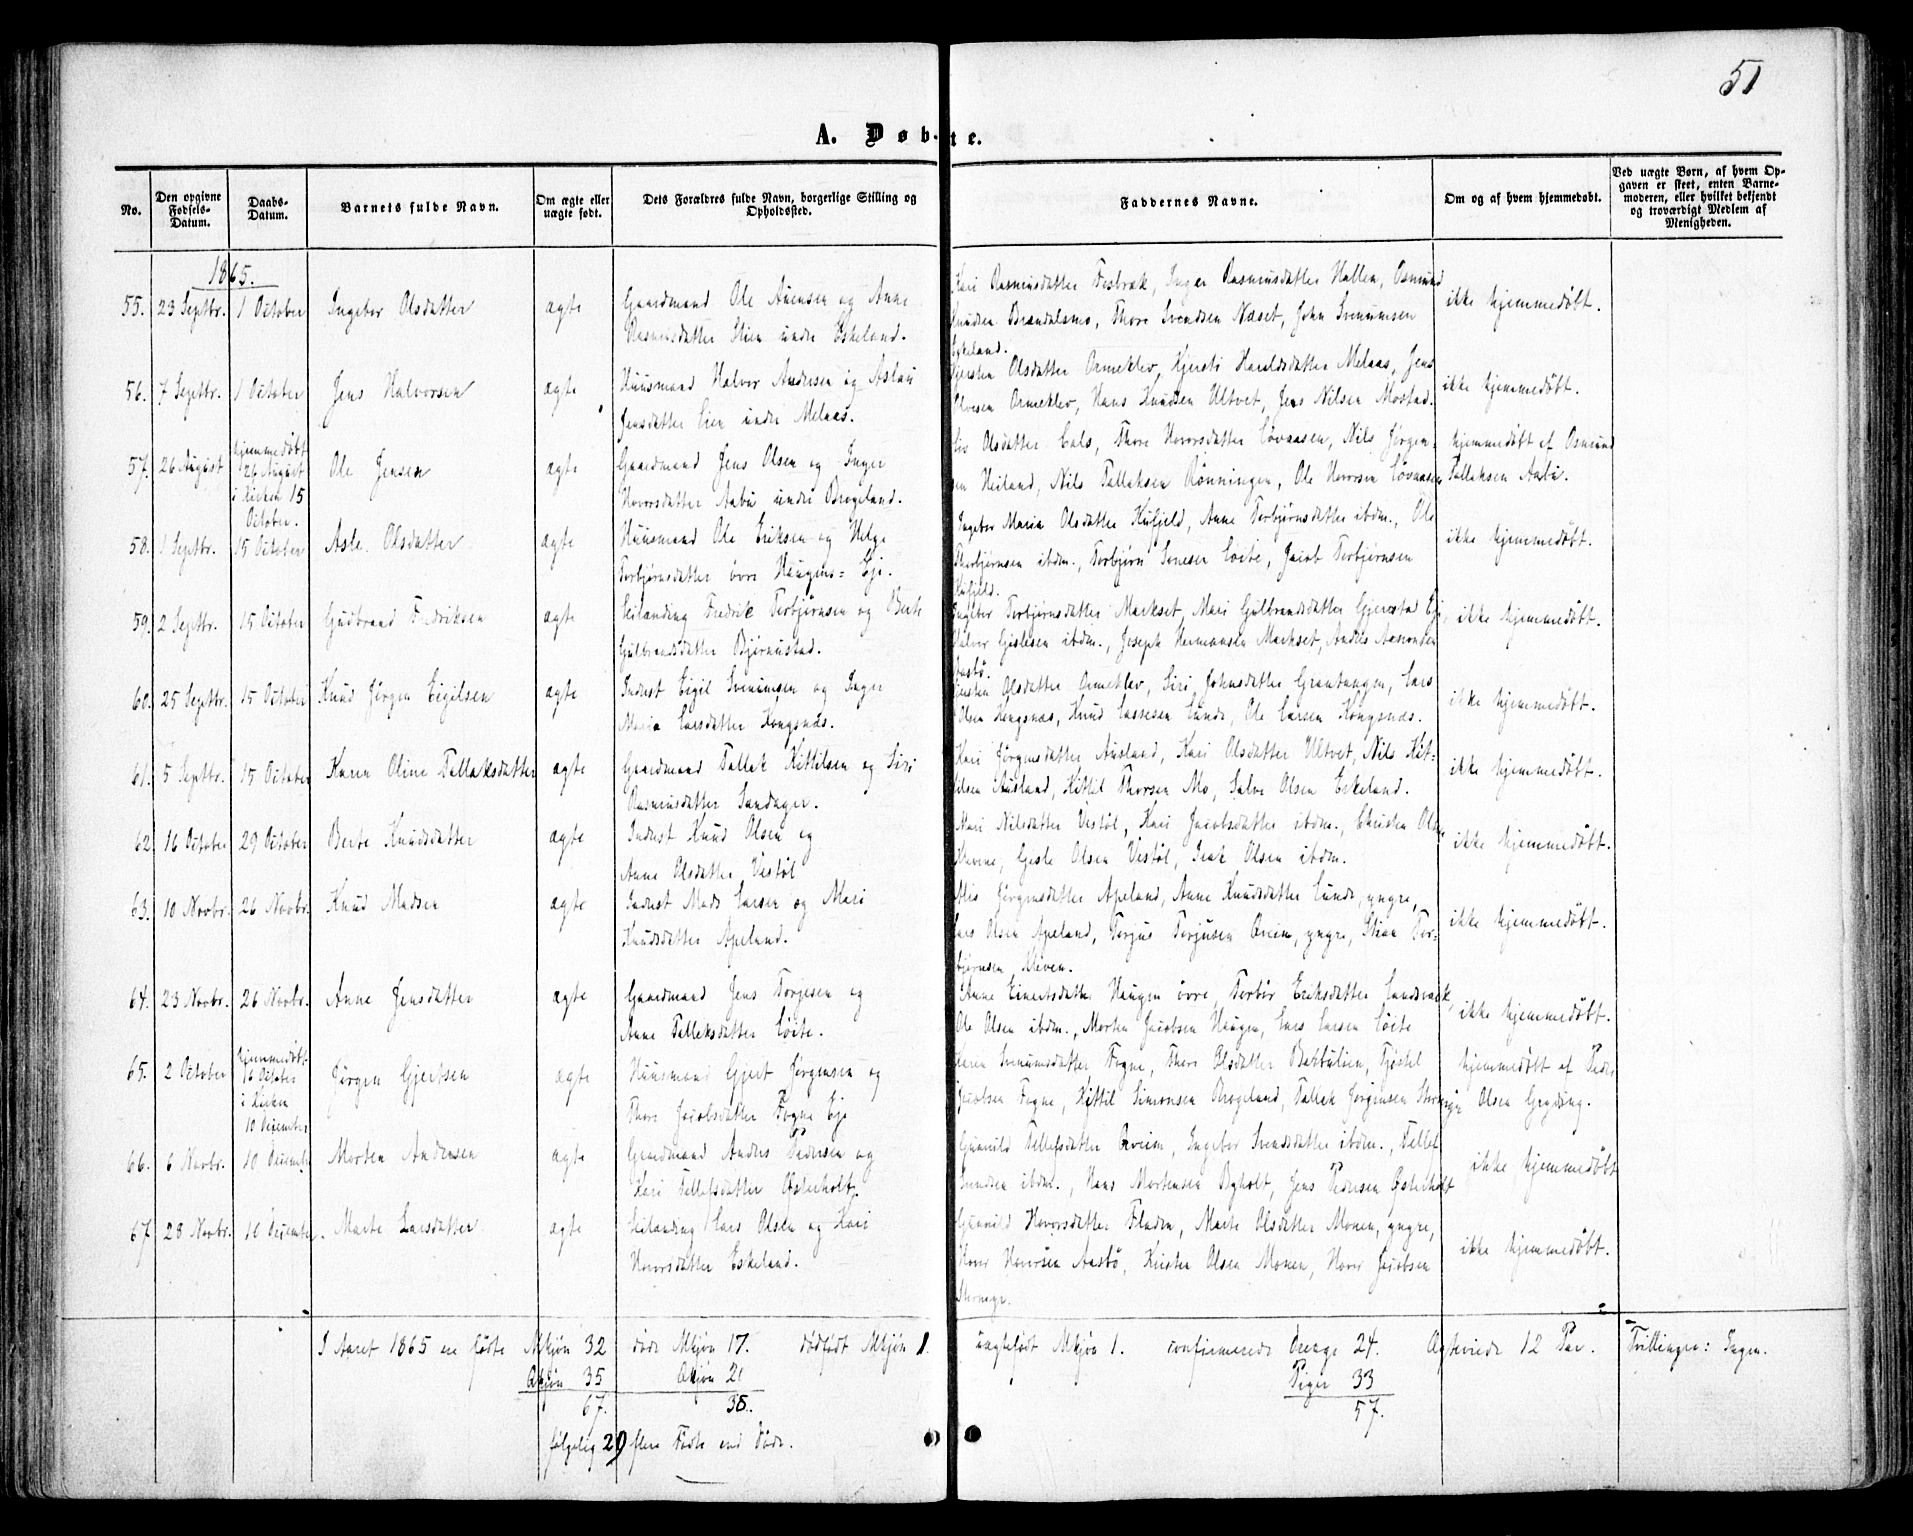 51
A. Døb-te.
No.
Den opgivne Fødsels-Datum.
Daabs-Datum.
Barnets fulde Navn.
Om ægte eller uægte født.
Dets Forældres fulde Navn, borgerlige Stilling og Opholdssted.
Faddernes Navne.
Om og af hvem hjemmedøbt.
Ved uægte Børn, af hvem Opgaven er skeet, enten Barnemoderen, eller hvilket bekjendt og troværdigt Medlem af Menigheden.
1865.
55. 23 Septbr. 1 October Ingebor Olsdatter ægte Gaardmand Ole Aurnsen og Anne
Rasmusdatter Stien under Eskeland.
Kari Rasmusdatter Fosbræk, Inger Rasmusdatter Hallen, Osmund
Knudsen Brændalsmo, Thore Svendsen Næset, John Svenumsen
Eskeland.
ikke hjemmedøbt.
56. 7 Septbr. 1 October Jens Halvorsen ægte Huusmand Halvor Andersen og Aslau
Jensdatter Lien under Melaas.
Kjersten Olsdatter Ormeklev, Kjersti Haraldsdatter Melaas, Jens
Olvesen Ormeklev, Hans Knudsen Ultvet, Jens Nilsen Mostad.
ikke hjemmedøbt.
57. 26 August hjemmedøbt
26 August
i Kirken 15
October.
Ole Jensen ægte Gaardmand Jens Olsen og Inger
Hovorsdatter Aabu under Brogeland.
Liv Olsdatter Eals, Thore Hovorsdatter Løvaasen, Nils Jørgen-
sen Heiland, Nils Tallaksen Rønningen, Ole Hovorsen Løvaasen
hjemmedøbt af Osmund
Tallaksen Aabu.
58. 1 Septbr. 15 October Asle Olsdatter ægte Huusmand Ole Eriksen og Helge
Torbjørnsdatter øvre Haugens Eje.
Ingebor Maria Olsdatter Kufjeld, Anne Torbjørnsdatter ibdm., Ole
Thorbjørnsen ibdm., Torbjørn Sonesen Løite, Jacob Torbjørnsen
Kufjeld.
ikke hjemmedøbt.
59. 2 Septbr. 15 October Gudbrand Fredriksen ægte Heilanding Fredrik Torbjørnsen og Berte
Gulbrandsdatter Bjørnustad.
Ingebor Torbjørnsdatter Markset, Mari Gulbrandsdatter Gjerestad Eje,
Halvor Gislesen ibdm., Joseph Hermansen Markset, Anders Aasonsen
Aasbø.
ikke hjemmedøbt.
60. 25 Septbr. 15 October Knud Jørgen Eigilsen ægte Inderst Eigil Svenumsen og Inger
Maria Larsdatter Kongsnæs.
Kjersten Olsdatter Ormeklev, Siri Johnsdatter Grautungen, Lars
Olsen Kongsnæs, Knud Lassesen Lunde, Ole Larsen Kongsnæs.
ikke hjemmedøbt.
61. 5 Septbr. 15 October Karen Oline Tallaksdatter ægte Gaardmand Tallak Kittilsen og Siri
Rasmusdatter Sandager.
Kari Jørgensdatter Ausland, Kari Olsdatter Ultvet, Nils Kit-
tilsen Ausland, Kittil Thorsen Mo, Salve Olsen Eskeland.
ikke hjemmedøbt.
62 16 October 29 October Berte Knudsdatter ægte Inderst Knud Olsen og
Anne Olsdatter Vestøl
Mari Nilsdatter Vestøl, Kari Jacobsdatter ibdm., Christen Olsen
Gisle Olsen Vestøl, Isak Olsen ibdm.
ikke hjemmedøbt.
63. 10 Novbr. 26 Novbr. Knud Madsen ægte Inderst Mads Larsen og Mari
Knudsdatter Apeland.
Jørgensdatter Apeland, Anne Knudsdatter Lunde, yngre,
Lars Olsen Apeland, Torjus Torjusen Qveim, yngre, Stian Tor-
bjørnsen Kleven.
ikke hjemmedøbt.
64. 23 Novbr. 26 Novbr. Anne Jensdatter ægte Gaardmand Jens Torjesen og
Anne Tallaksdatter Løite.
Anne Einertsdatter Haugen øvre, Torbør Eriksdatter Landsværk,
Ole Olsen ibdm., Morten Jacobsen Haugen, Lars Larsen Løite
ikke hjemmedøbt.
65. 2 October hjemmedøbt
16 October
i Kirken
10 December
Jørgen Gjertsen ægte Huusmand Gjert Jørgensen og
Thore Jacobsdatter Fogne Eje
Karen Svenumsdatter Fogne, Thore Olsdatter Bakkulien, Tjøstel
Jacobsen Fogne, Kittil Simonsen Brogeland, Tallak Jørgensen
hjemmedøbt af Peder
Olsen Gryding.
66. 6 Novbr. 10 December Morten Andersen ægte Gaardmand Anders Pedersen og
Kari Tellefsdatter Østerholt.
Gunnild Tellefsdatter Qveim, Ingebor Svendsdatter ibdm., Tellef
Svendsen ibdm., Hans Mortensen Bgholt, Jens Pedersen Østerholt
ikke hjemmedøbt
67 28 Novbr. 10 December. Marte Larsdatter ægte Heilanding Lars Olsen og Kari
Hovorsdatter Eskeland.
Gunnild Hovorsdatter Fladen, Marte Olsdatter Monen, yngre,
Hovor Hovorsen Aasbø, Kirsten Olsen Monen, Hovor Jacobsen
ikke hjemmedøbt.
I Aaret 1865 ere fødte Mkjøn 32 døde Mkjøn 17. dødfødt Mkjøn 1. uægtefødt Mkjøn 1. confirmerede Drenge 24. Ægteviede 12 Par. Tvillinger: Ingen.
Qkjøn 35 Qkjøn 21 Piger 33
67. 38. 57.
følgelig 29 flere Fødte end Døde.